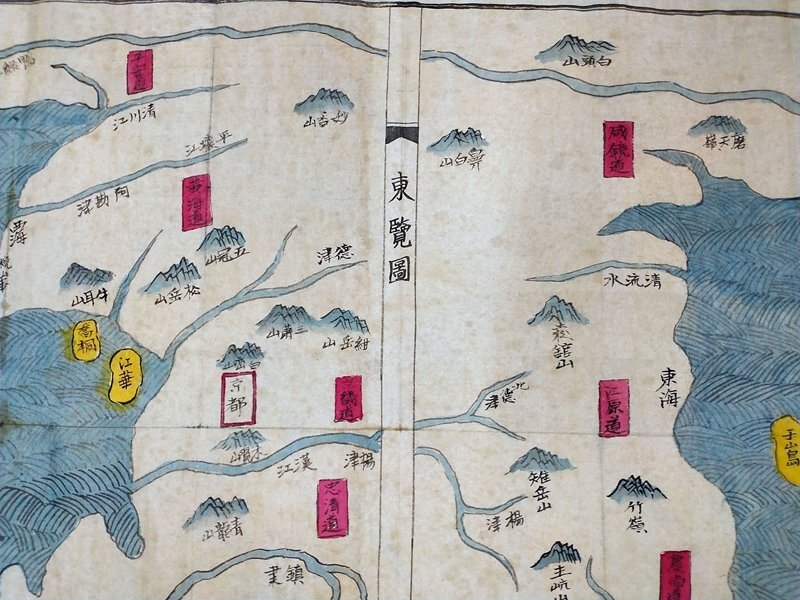 東覽圖
白頭山
鼻白山
咸鏡道
磨天嶺
清流水
東海
江原道
于山島
雉岳山
竹嶺
楊津
慶尚道
平安道
清川江
妙香山
平壤江
黃海道
西海
五冠山
松岳山
牛耳山
德津
紺岳山
京都
京畿道
喬桐
江華
漢江
楊津
忠清道
青龍山
鎮